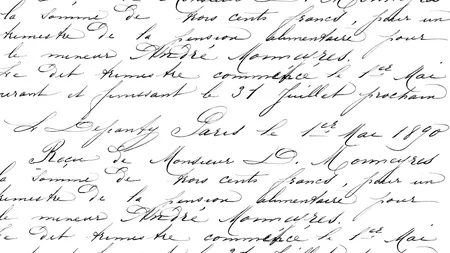 la somme de trois cents francs, pour un
trimestre de la pension alimentaire pour
le mineur André Monnayres.
Le dit trimestre commence le 1er Mai
courant et finissant le 31 Juillet prochain
Paris le 1er Mai 1890
Reçu de Monsieur D. Monnayres
la somme de trois cents francs, pour un
trimestre de la pension alimentaire pour
le mineur André Monnayres.
Le dit trimestre commence le 1er Mai